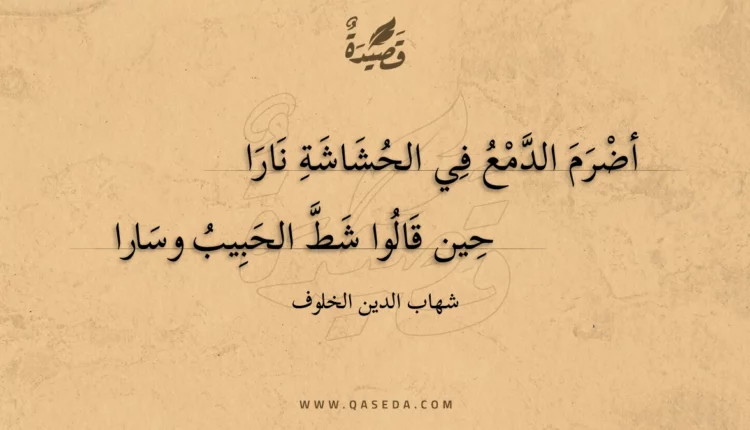 قَصِيْدَةٌ
أضْرَمَ الدَّمْعُ فِي الحُشَاشَةِ نَارَا
حِين قَالُوا شَطَّ الحَبِيبُ وسَارا
شهاب الدين الخلوف
WWW.QASEDA.COM